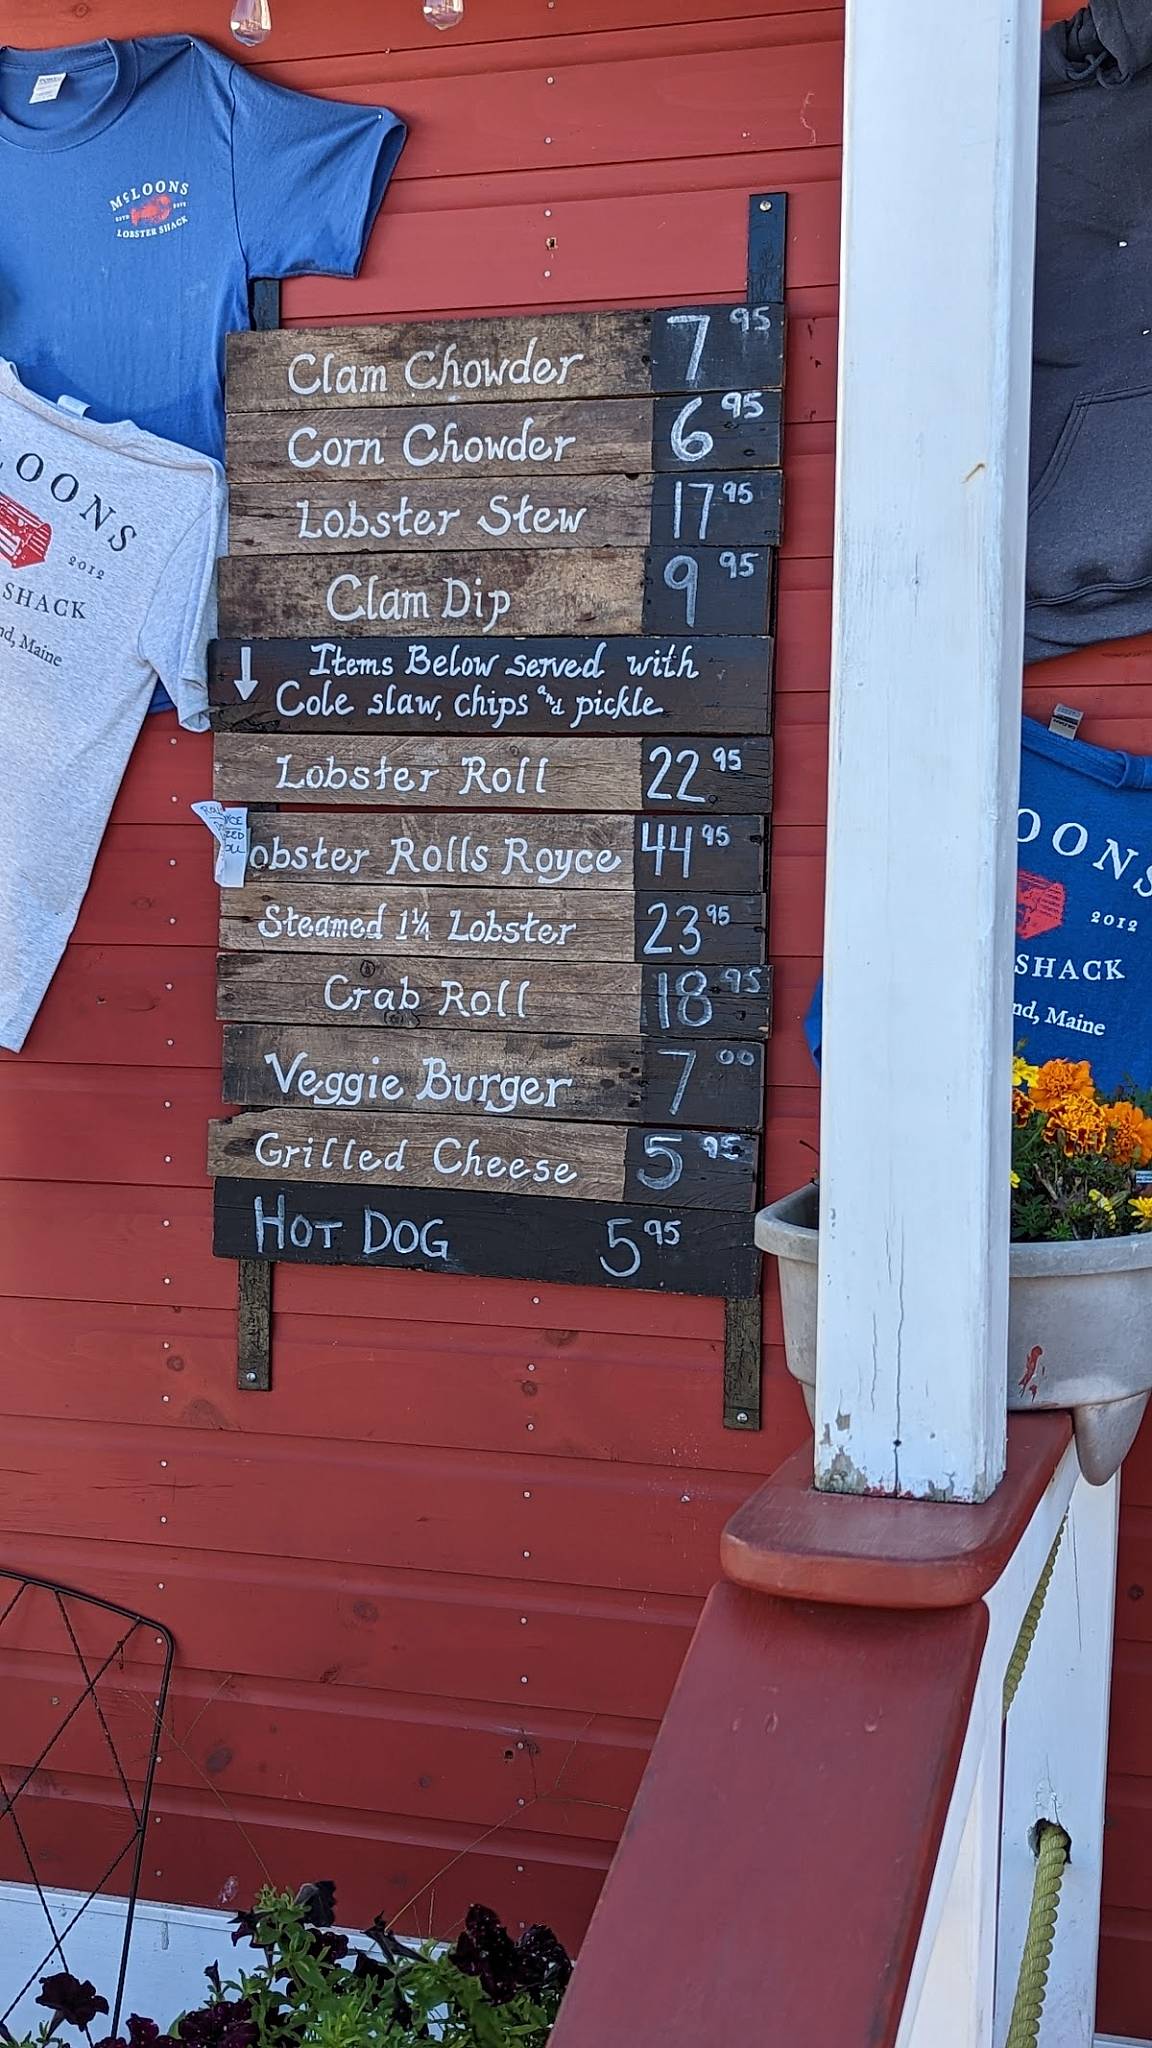 McLOONS
ESTD 2012
LOBSTER SHACK
LOONS
2012
SHACK
nd, Maine
Clam Chowder 7 95
Corn Chowder 6 95
Lobster Stew 17 95
Clam Dip 9 95
Items Below served with
Cole slaw, chips and pickle
Lobster Roll 22 95
obster Rolls Royce 44 95
Steamed 1 1/4 Lobster 23 95
Crab Roll 18 95
Veggie Burger 7 00
Grilled Cheese 5 95
HOT DOG 5 95
OONS
2012
SHACK
nd, Maine